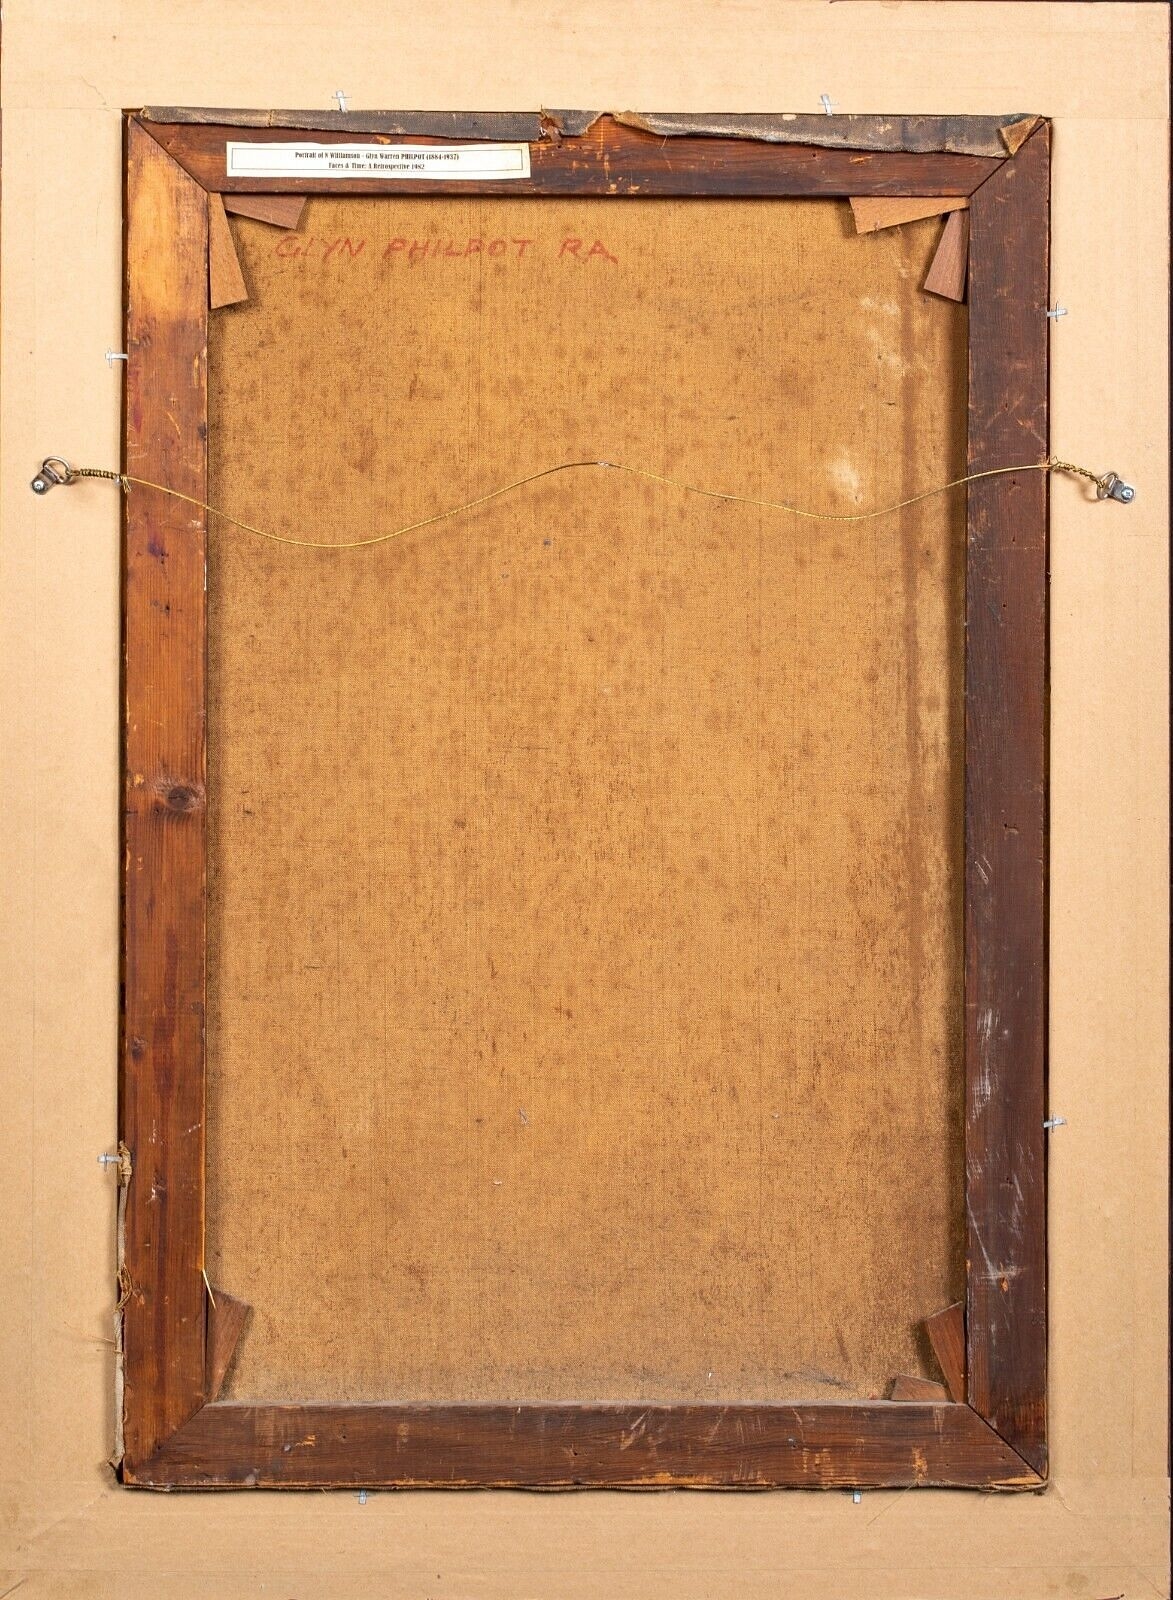 Portrait of N Williamson - Glyn Warren PHILPOT (1884-1937)
Faces & Time: A Retrospective 1982
GLYN PHILPOT RA